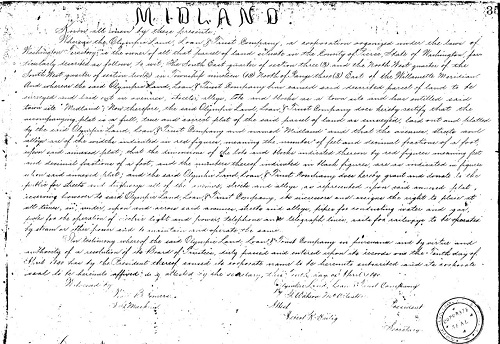 MIDLAND.
Know all men by these presents
Whereas the Olympia Land, Loan & Trust Company, a corporation organized under the laws of
Washington is the owner of all that parcel of land situate in the County of Pierce, State of Washington, par
ticularly described as follows to wit: The South East quarter of section three (3) and the North East quarter of the
South West quarter of section in Township nineteen (19) North of Range three (3) East of the Willamette Meridian
And whereas the said Olympia Land, Loan & Trust Company has caused said described parcel of land to be
surveyed and laid out in avenues, streets, alleys, lots and blocks as a town site and has entitled said
town site "Midland"; Now therefore, the said Olympia Land, Loan & Trust Company does hereby certify that the
accompanying plat is a full, true and correct plat of the said parcel of land as surveyed, laid out and platted
by the said Olympia Land, Loan & Trust Company and named "Midland" and that the avenues, streets and
alleys are of the widths indicated in red figures, meaning the number of feet and decimal fractions of a foot
upon said annexed plat, that the dimensions of the lots and blocks indicated thereon by red figures meaning feet
and decimal fractions of a foot, and the numbers thereof indicated in black figures, are as indicated in figures
upon said annexed plat; and the said Olympia Land, Loan & Trust Company does hereby grant and donate to the
public for streets and highways all of the avenues, streets and alleys, as represented upon said annexed plat,
reserving however to said Olympia Land, Loan & Trust Company, its successors and assigns the right to place at
all times, in, under, upon and across said avenues, streets and alleys, pipes for conducting water and gas,
poles for the operation of electric light and power, telephone and telegraph lines, rails for railways to be operated
by steam or other power and to maintain and operate the same.
In testimony whereof the said Olympia Land, Loan & Trust Company in pursuance and by virtue and
authority of a resolution of its Board of Trustees, duly passed and entered upon its records on the Tenth day of
April 1890 has by the President thereof caused its corporate name to be hereunto subscribed and its corporate
seal to be hereunto affixed & attested by the secretary, this Tenth day of April 1890.
Witnessed by
Olympia Land, Loan & Trust Company
By
President
Attest
Secretary
CORPORATE
SEAL